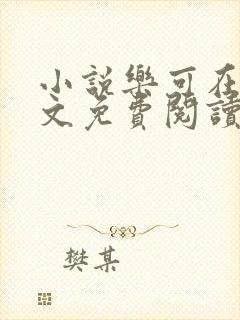 小説樂可在
文免費閱讀
樊某